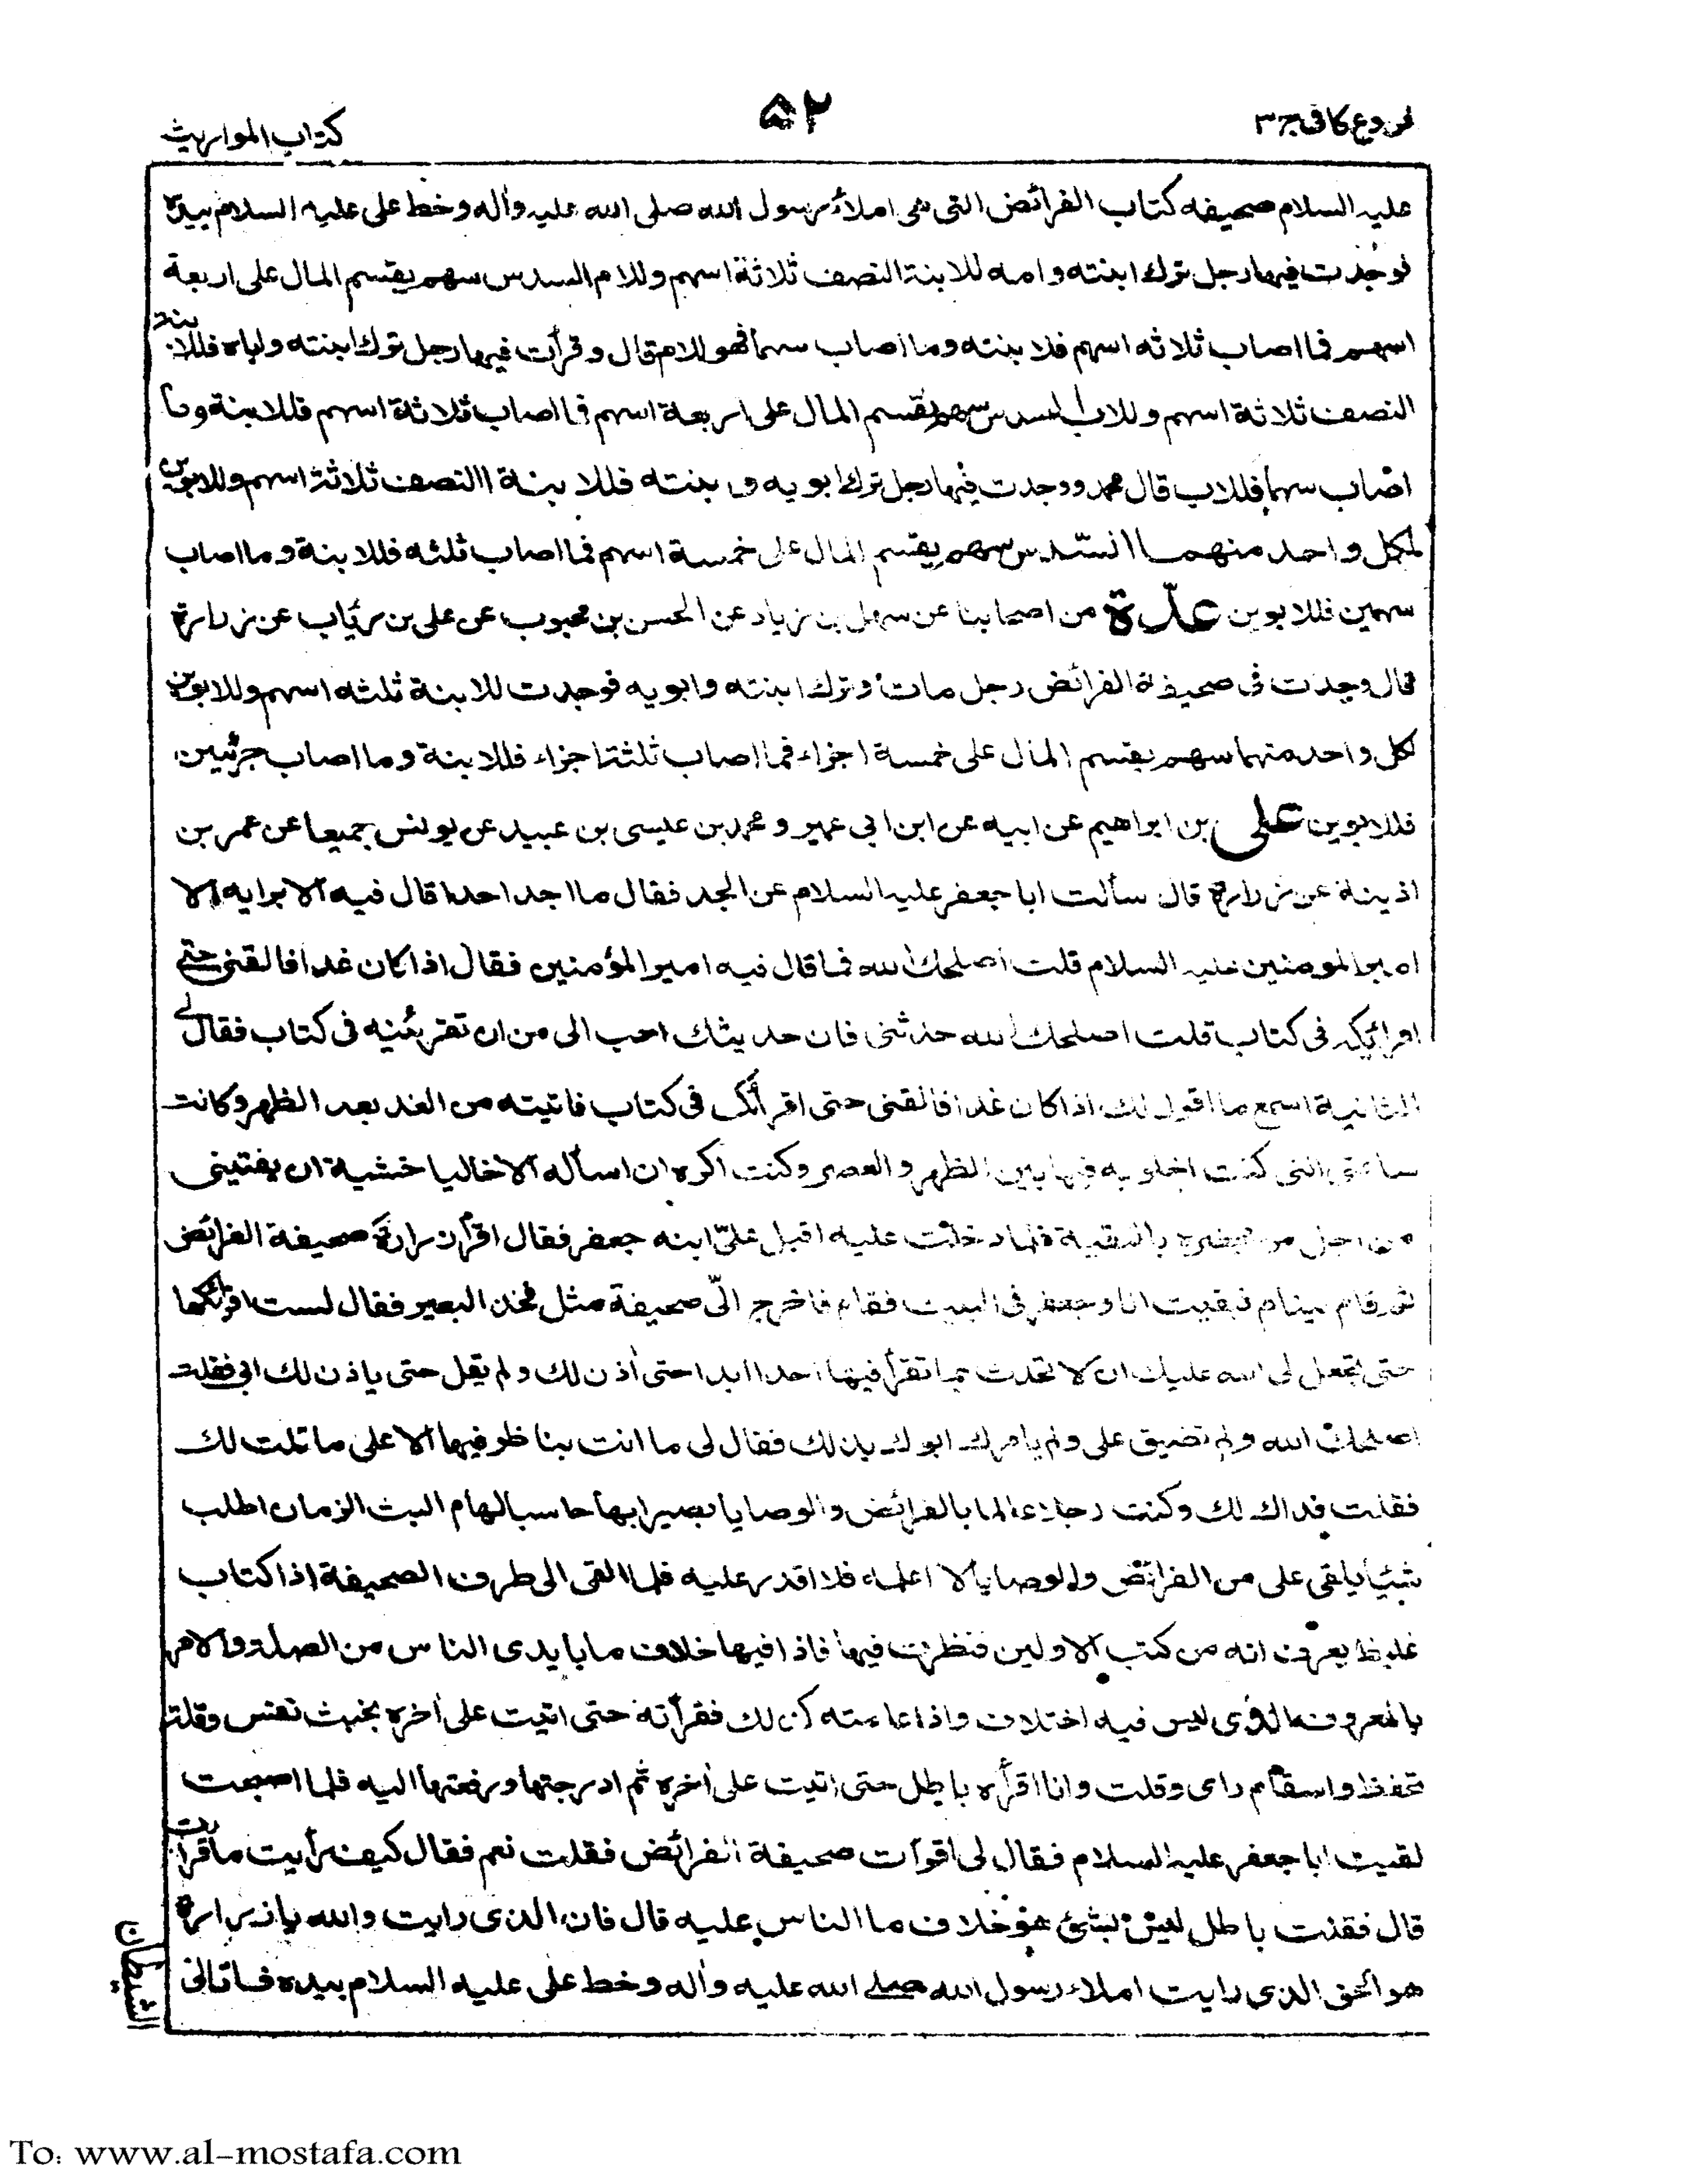 فروع كافى ج ٣
٥٢
كتاب المواريث
عليه السلام صحيفه كتاب الفرائض التى هى املاء رسول الله صلى الله عليه وأله وخط على عليه السلام بيده
فوجدت فيها رجل ترك ابنته وامه للابنة النصف ثلاثة اسهم وللام السدس سهم يقسم المال على اربعة
اسهم فما اصاب ثلاثه اسهم فلابنته وما اصاب سهما فهو للام قال وقرأت فيها رجل ترك ابنته واباه فللابنة
النصف ثلاثة اسهم وللاب السدس سهم يقسم المال على اربعة اسهم فما اصاب ثلاثة اسهم فللابنة وما
اصاب سهما فللاب قال محمد ووجدت فيها رجل ترك ابويه وبنته فللابنة النصف ثلاثة اسهم وللابوين
لكل واحد منهما السّدس سهم يقسم المال على خمسة اسهم فما اصاب ثلثه فللابنة وما اصاب
سهمين فللابوين عدّة من اصحابنا عن سهل بن زياد عن الحسن بن محبوب عن على بن رئاب عن زرارة
قال وجدت فى صحيفة الفرائض رجل مات وترك ابنته وابويه فوجدت للابنة ثلثه اسهم وللابوين
لكل واحد منهما سهم يقسم المال على خمسة اجزاء فما اصاب ثلثة اجزاء فللابنة وما اصاب جزئين
فللابوين على بن ابراهيم عن ابيه عن ابن ابى عمير ومحمد بن عيسى بن عبيد عن يونس جميعا عن عمر بن
اذينة عن زرارة قال سألت ابا جعفر عليه السلام عن الجد فقال ما اجد احدا قال فيه الا برايه الا
امير المومنين عليه السلام قلت اصلحك الله فما قال فيه امير المؤمنين فقال اذا كان غدا فالقنى حتى
اقرائيكه فى كتاب قلت اصلحك الله حدثنى فان حديثك احب الى من ان تقرئنيه فى كتاب فقال لى
الثانية اسمع ما اقول لك اذا كان غدا فالقنى حتى اقرأكه فى كتاب فاتيته من الغد بعد الظهر وكانت
ساعتى التى كنت اخلو به فيها بين الظهر والعصر وكنت اكره ان اساله الا خاليا خشية ان يفتينى
من اجل من يحضره بالتقية فلما دخلت عليه اقبل علىّ ابنه جعفر فقال اقرأ زرارة صحيفة الفرائض
ثم قام لينام فبقيت انا وجعفر فى البيت فقام فاخرج الىّ صحيفة مثل فخذ البعير فقال لست اقرئكها
حتى تجعل لى الله عليك ان لا تحدث بما تقرأ فيها احدا ابدا حتى أذن لك ولم يقل حتى ياذن لك ابى فقلت
اصلحك الله ولم تضيق على ولم يامرك ابوك بذلك فقال لى ما انت بناظر فيها الا على ما قلت لك
فقلت فذاك لك وكنت رجلا عالما بالفرائض والوصايا بصيرا بها حاسبا لها م البث الزمان اطلب
شيئا يلقى على من الفرائض والوصايا لا اعلمه فلا اقدر عليه فلما القى الى طرف الصحيفة اذا كتاب
غليظ يعرف انه من كتب الاولين فنظرت فيها فاذا فيها خلاف ما بايدى الناس من الصلة والامر
بالمعروف الذى ليس فيه اختلاف واذا عامته كذلك فقرأته حتى اتيت على أخره بخبث نفس وقلة
تحفظ واسقام راى وقلت وانا اقرأه باطل حتى اتيت على أخره ثم ادرجتها ورفعتها اليه فلما اصبحت
لقيت ابا جعفر عليه السلام فقال لى اقرأت صحيفة الفرائض فقلت نعم فقال كيف رأيت ما قرأت
قال فقلت باطل ليس بشئ هو خلاف ما الناس عليه قال فان الذى رايت والله يا زرارة
هو الحق الذى رايت املاء رسول الله صلى الله عليه وأله وخط على عليه السلام بيده فاتانى
الشيطان
To: www.al-mostafa.com